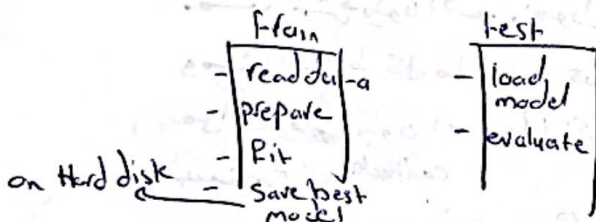 train
- read data
- prepare
- Fit
- Save best
model
on Hard disk
test
- load
model
- evaluate